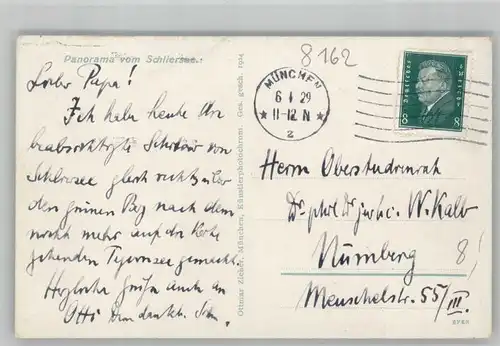 8162
Panorama vom Schliersee.
MÜNCHEN
6 1 29
11-12 N
2
Deutsches Reich
8 8
Lieber Papa!
Ich habe heute die
beabsichtigte Skitour von
Schliersee gleich rechts über
den grünen Berg nach dem
nicht mehr auf der Karte
gehenden Tegernsee gemacht.
Herzliche Grüße auch an
Otti Dein dankb. Sohn.
Ottmar Zieher, München, Künstlerphotochrom. Ges. gesch. 1914
Herrn Oberstudienrat
Dr. phil. Dr. jur. h.c. W. Kalb
Nürnberg 8
Meuschelstr. 55/III.